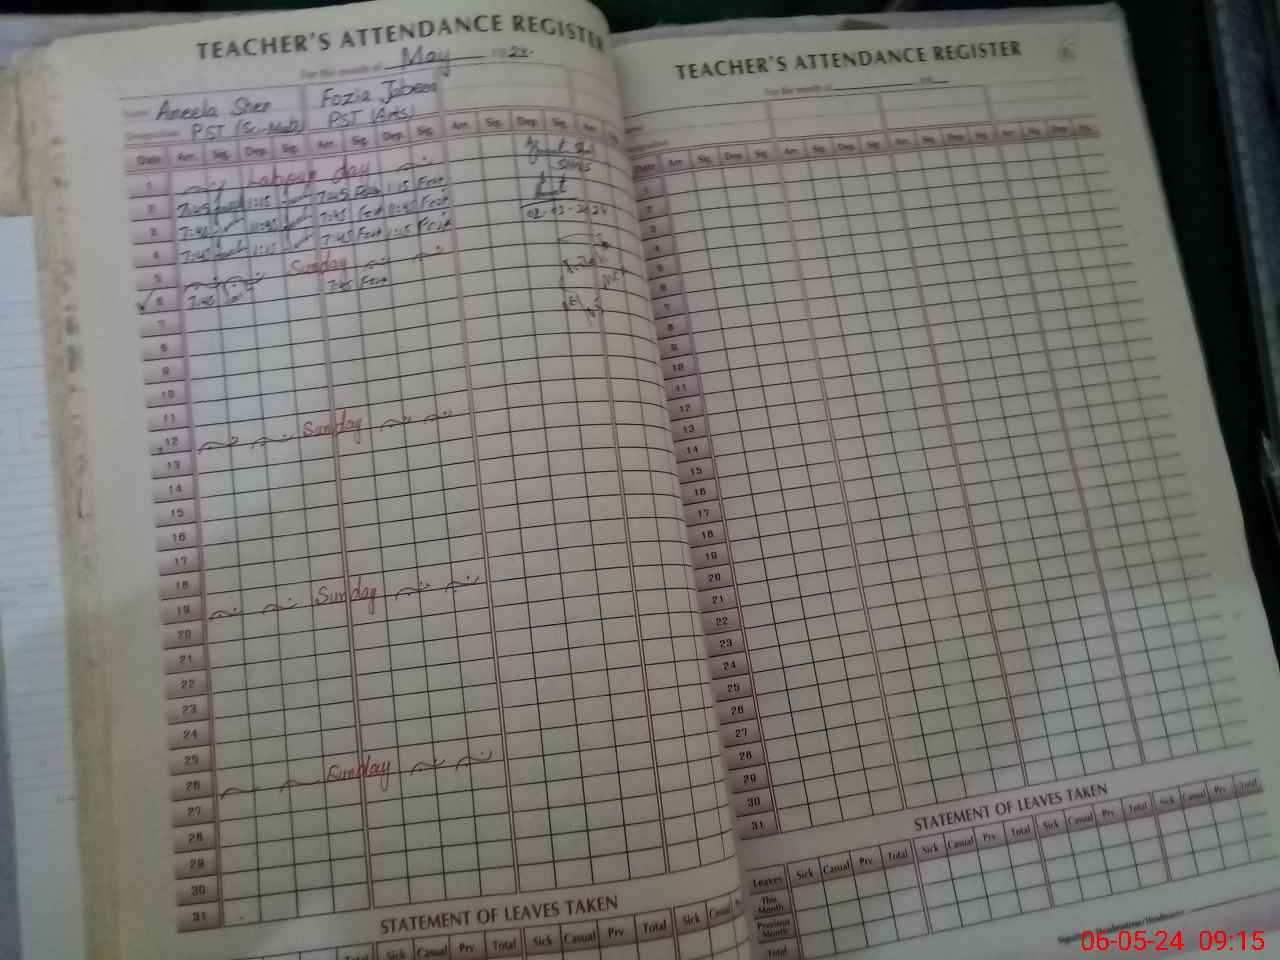 TEACHER'S ATTENDANCE REGISTER
For the month of May 24
Aneela Sher Fozia Jabeen
PST (Sci-Math) PST (Arts)
Date Arr. Sig. Dep. Sig. Arr. Sig. Dep. Sig. Arr. Sig. Dep. Sig. Arr.
1 Labour day
2 7:45 1:15 7:45 Foz 1:15 Foz
3 7:45 11:45 7:45 Foz 11:45 Foz
4 7:45 1:15 7:45 Foz 1:15 Foz
5 Sunday
6 7:45 7:45 Foz
7
8
9
10
11
12 Sunday
13
14
15
16
17
18
19 Sunday
20
21
22
23
24
25
26 Sunday
27
28
29
30
31
02-05-2024
STATEMENT OF LEAVES TAKEN
Sick Casual Prv. Total Sick Casual Prv. Total Sick Casual
TEACHER'S ATTENDANCE REGISTER
For the month of
Date Arr. Sig. Dep. Sig. Arr. Sig. Dep. Sig. Arr. Sig. Dep. Sig. Arr. Sig. Dep. Sig.
1
2
3
4
5
6
7
8
9
10
11
12
13
14
15
16
17
18
19
20
21
22
23
24
25
26
27
28
29
30
31
STATEMENT OF LEAVES TAKEN
Leaves Sick Casual Prv. Total Sick Casual Prv. Total Sick Casual Prv. Total Sick Casual Prv. Total
This Month
Previous Month
Total
06-05-24 09:15